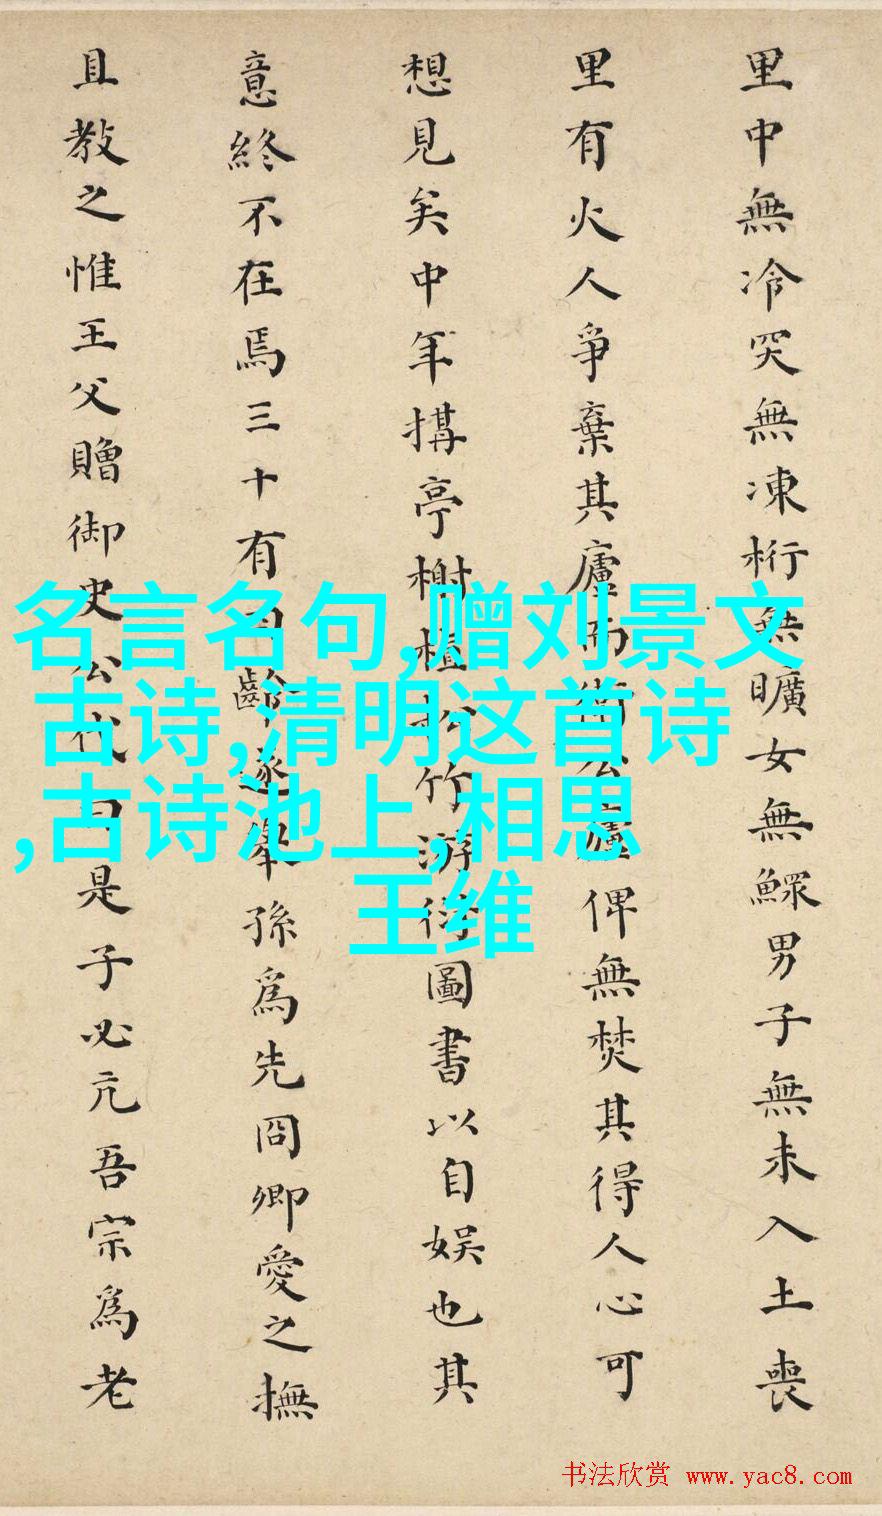 里中無冷突無凍桁無曠女無鰥男子無未入土喪
里有火人爭棄其廬而衛公廬俾無焚其得人心可
想見矣中年搆亭榭植松竹游衍圖書以自娛也其
意終不在焉三十有齡遂舉孫爲先冏卿愛之撫
且教之惟王父贈御史公代曰是子必亢吾宗爲老
名言名句,赠刘景文
古诗,清明这首诗
,古诗池上,相思
王维
书法欣赏 www.yac8.com